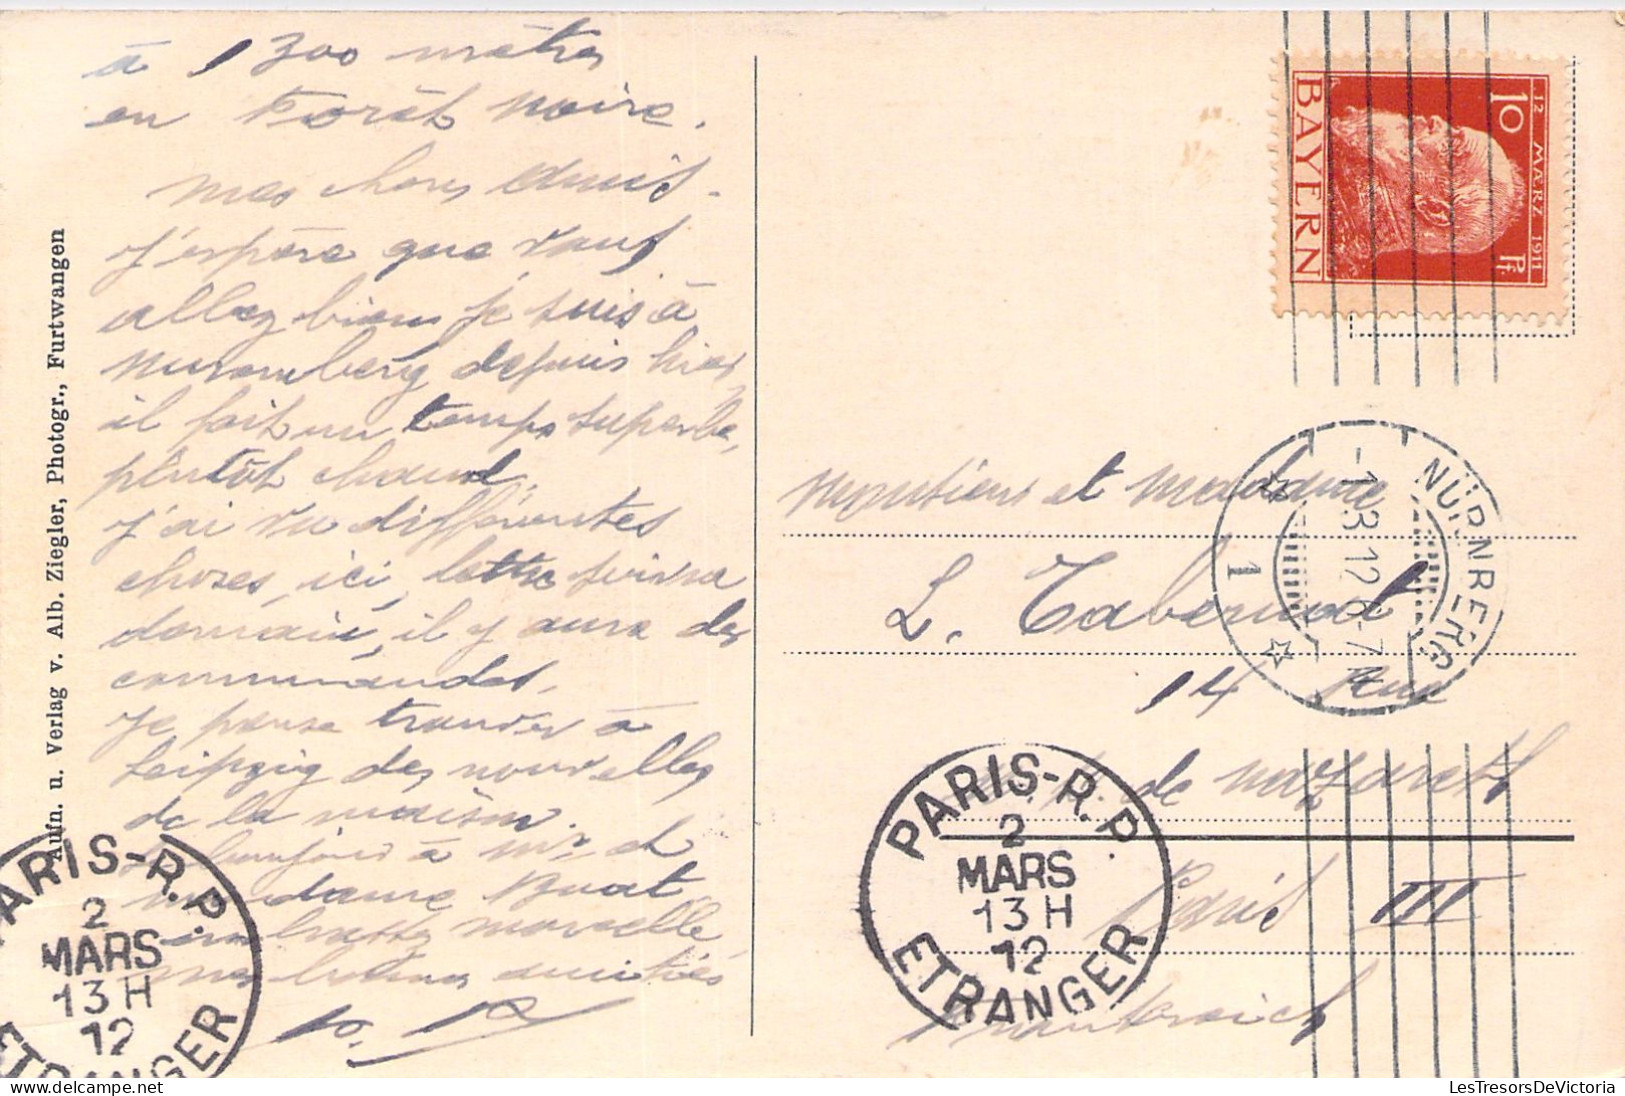 à 1300 mètres
en Forêt noire.
mes chers amis.
j'espère que vous
allez bien je suis à
Nuremberg depuis hier,
il fait un temps superbe,
plutôt chaud.
j'ai vu différentes
choses, ici, lettre suivra
demain, il y aura des
commandes.
je pense trouver à
Leipzig des nouvelles
de la maison.
bonjour à Mr et
madame Buat
embrassez marcelle
mes bonnes amitiés
Aufn. u. Verlag v. Alb. Ziegler, Photogr., Furtwangen
12 MÄRZ 1911
10 Pf
BAYERN
NÜRNBERG
-1.3.12 6-7
1
monsieur et madame
L. Tabernat
14 Rue
de nazareth
Paris III
Frankreich
PARIS-R.P.
2
MARS
13H
12
ETRANGER
PARIS-R.P.
2
MARS
13H
12
ETRANGER
LesTresorsDeVictoria